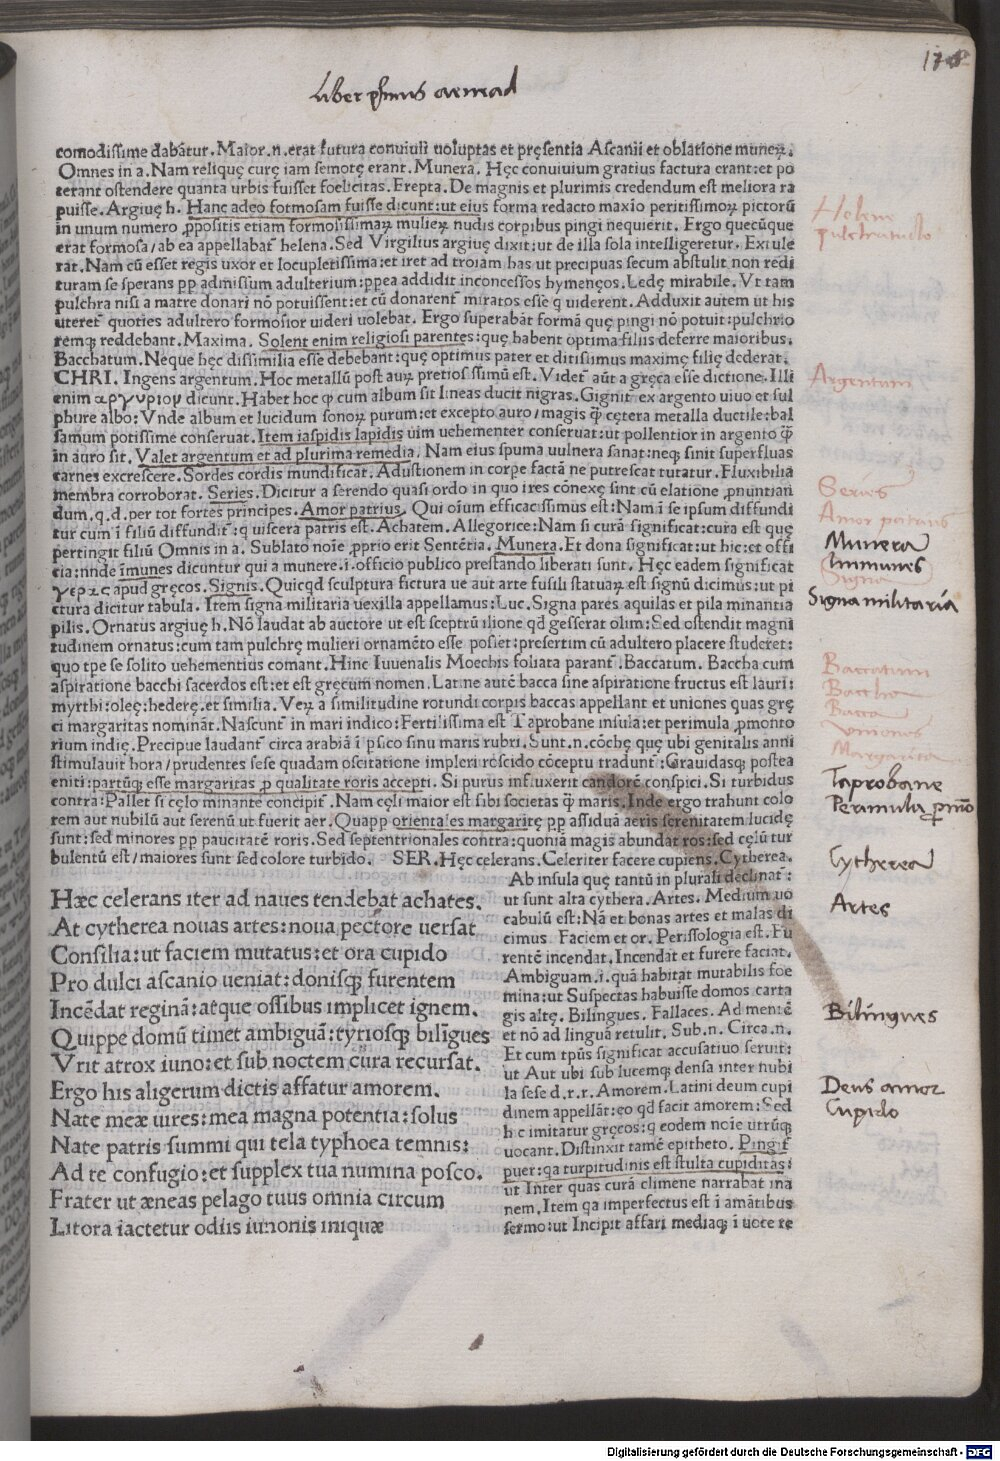 178
Liber primus aeneid
comodissime dabãtur. Maior .n. erat futura conuiuii uoluptas et pręsentia Ascanii et oblatione muneꝝ.
Omnes in a. Nam reliquę curę iam semotę erant. Munera. Hęc conuiuium gratius factura erant: et po
terant ostendere quanta urbis fuisset foelicitas. Erepta. De magnis et plurimis credendum est meliora ra
puisse. Argiuę h. Hanc adeo formosam fuisse dicunt: ut eius forma redacto maxĩo peritissimoꝝ pictorũ
in unum numero ꝓpositis etiam formosissimaꝝ mulieꝝ nudis corpibus pingi nequierit. Ergo quecũque
erat formosa/ ab ea appellabat̃ helena. Sed Virgilius argiuę dixit: ut de illa sola intelligeretur. Extule
rat. Nam cũ esset regis uxor et locupletissima: et iret ad troiam has ut precipuas secum abstulit non redi
turam se sperans pp admissum adulterium: ppea addidit inconcessos hymenęos. Ledę mirabile. Vt tam
pulchra nisi a matre donari nõ potuissent: et cũ donarent̃ miratos esse q uiderent. Adduxit autem ut his
uteret̃ quoties adultero formosior uideri uolebat. Ergo superabãt formã quę pingi nõ potuit: pulchrio
remqꝫ reddebant. Maxima. Solent enim religiosi parentes: quę habent optima filiis deferre maioribus.
Bacchatum. Neque hęc dissimilia esse debebant: quę optimus pater et ditissimus maximę filię dederat.
CHRI. Ingens argentum. Hoc metallũ post auꝝ pretiosissimũ est. Videt̃ aũt a gręca esse dictione. Illi
enim αργυριον dicunt. Habet hoc ꝙ cum album sit lineas ducit nigras. Gignit̃ ex argento uiuo et sul
phure albo: Vnde album et lucidum sonoꝝ purum: et excepto auro/ magis q̃ cętera metalla ductile: bal
samum potissime conseruat. Item iaspidis lapidis uim uehementer conseruat: ut pollentior in argento q̃
in auro sit. Valet argentum et ad plurima remedia. Nam eius spuma uulnera sanat: neqꝫ sinit superfluas
carnes excrescere. Sordes cordis mundificat. Adustionem in corpe factã ne putrescat tutatur. Fluxibilia
membra corroborat. Series. Dicitur a serendo quasi ordo in quo ires cõnexę sint cũ elatione ꝓnuntian
dum. q.d. per tot fortes principes. Amor patrius. Qui oĩum efficacissimus est: Nam ĩ se ipsum diffundi
tur cum ĩ filiũ diffundit̃: q uiscera patris est. Achatem. Allegorice: Nam si curã significat: cura est quę
pertingit filiũ Omnis in a. Sublato noĩe ꝓprio erit Sentẽtia. Munera. Et dona significat: ut hic: et offi
cia: unde ĩmunes dicuntur qui a munere .i. officio publico prestando liberati sunt. Hęc eadem significat
γερας apud gręcos. Signis. Quicqd sculptura fictura ue aut arte fusili statuaꝝ est signũ dicimus: ut pi
ctura dicitur tabula. Item signa militaria uexilla appellamus: Luc. Signa pares aquilas et pila minantia
pilis. Ornatus argiuę h. Nõ laudat ab auctore ut est sceptrũ ilione qd gesserat olim: Sed ostendit magni
tudinem ornatus: cum tam pulchrę mulieri ornamẽto esse posset: presertim cũ adultero placere studeret:
quo tpe se solito uehementius comant. Hinc Iuuenalis Moechis foliata parant̃. Baccatum. Baccha cum
aspiratione bacchi sacerdos est: et est gręcum nomen. Latine autẽ bacca sine aspiratione fructus est lauri:
myrthi: oleę: hederę. et similia. Veꝝ a similitudine rotundi corpis baccas appellant et uniones quas grę
ci margaritas nominãt. Nascunt̃ in mari indico: Fertilissima est Taprobane insula: et perimula ꝓmonto
rium indię. Precipue laudant̃ circa arabiã ĩ psico sinu maris rubri. Sunt .n. cõchę quę ubi genitalis anni
stimulauit hora/ prudentes sese quadam oscitatione impleri roscido cõceptu tradunt̃: Grauidasqꝫ postea
eniti: partũqꝫ esse margaritas ꝓ qualitate roris accepti. Si purus influxerit candorẽ conspici. Si turbidus
contra: Pallet si cęlo minante concipit̃. Nam cęli maior est sibi societas q̃ maris. Inde ergo trahunt colo
rem aut nubilũ aut serenũ ut fuerit aer. Quapp orientales margaritę pp assiduã aeris serenitatem lucidę
sunt: sed minores pp paucitatẽ roris. Sed septentrionales contra: quoniã magis abundat ros: sed cęlũ tur
bulentũ est/ maiores sunt sed colore turbido. SER. Hęc celerans. Celeriter facere cupiens. Cytherea.
Hæc celerans iter ad naues tendebat achates.
At cytherea nouas artes: noua pectore uersat
Consilia: ut faciem mutatus: et ora cupido
Pro dulci ascanio ueniat: donisqꝫ furentem
Incẽdat reginã: atque ossibus implicet ignem.
Quippe domũ timet ambiguã: tyriosqꝫ bilĩgues
Vrit atrox iuno: et sub noctem cura recursat.
Ergo his aligerum dictis affatur amorem.
Nate meæ uires: mea magna potentia: solus
Nate patris summi qui tela typhoea temnis:
Ad te confugio: et supplex tua numina posco.
Frater ut æneas pelago tuus omnia circum
Litora iactetur odiis iunonis iniquæ
Ab insula quę tantũ in plurali declinat:
ut sunt alta cythera. Artes. Medium uo
cabulũ est: Nã et bonas artes et malas di
cimus Faciem et or. Perissologia est. Fu
rentẽ incendat. Incendat et furere faciat.
Ambiguam .i. quã habitat mutabilis foe
mina: ut Suspectas habuisse domos carta
gis altę. Bilingues. Fallaces. Ad mentẽ
et nõ ad linguã retulit. Sub .n. Circa .n.
Et cum tpũs significat accusatiuo seruit:
ut Aut ubi sub lucemqꝫ densa inter nubi
la sese d.r.r. Amorem. Latini deum cupi
dinem appellãt: eo qd facit amorem: Sed
hic imitatur gręcos: q eodem noĩe utrũqꝫ
uocant. Distinxit tamẽ epitheto. Pingit̃
puer: qa turpitudinis est stulta cupiditas:
ut Inter quas curã climene narrabat ina
nem. Item qa imperfectus est ĩ amãtibus
sermo: ut Incipit affari mediaqꝫ ĩ uoce re
Helene
pulchritudo
Argentum
Series
Amor patrius
Munera
Immunes
Signa
Signa militaria
Baccatum
Baccha
Bacca
Vniones
Margarita
Taprobane
Perimula promo
Cytherea
Artes
Bilingues
Deus amor
Cupido
Digitalisierung gefördert durch die Deutsche Forschungsgemeinschaft - DFG